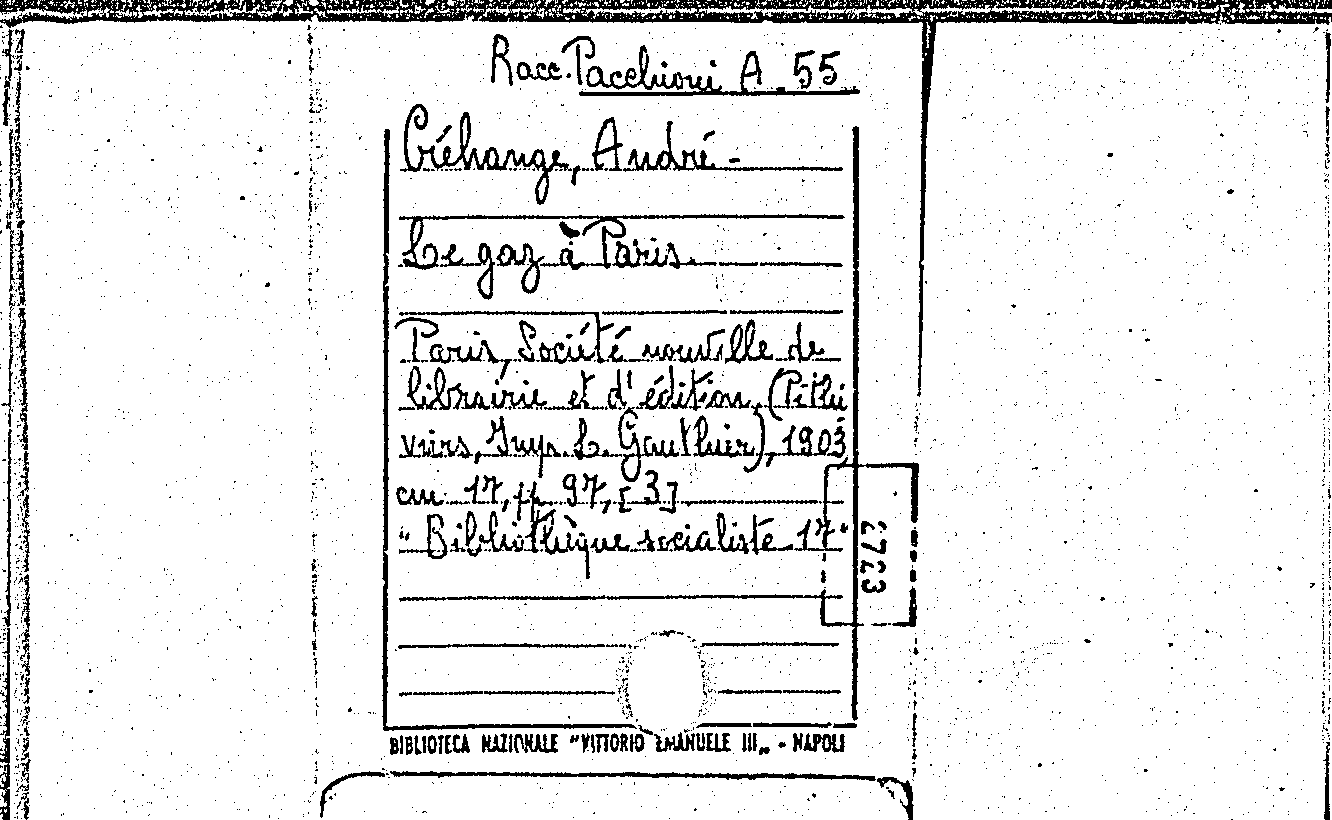 Racc. Pacchioni A. 55
Créhange, André -
Le gaz à Paris.
Paris, Société nouvelle de
librairie et d'édition, (Pithi
viers, Imp. L. Gauthier), 1903
cm 17, pp 97, [3]
"Bibliothèque socialiste 17"
BIBLIOTECA NAZIONALE "VITTORIO EMANUELE III„ - NAPOLI